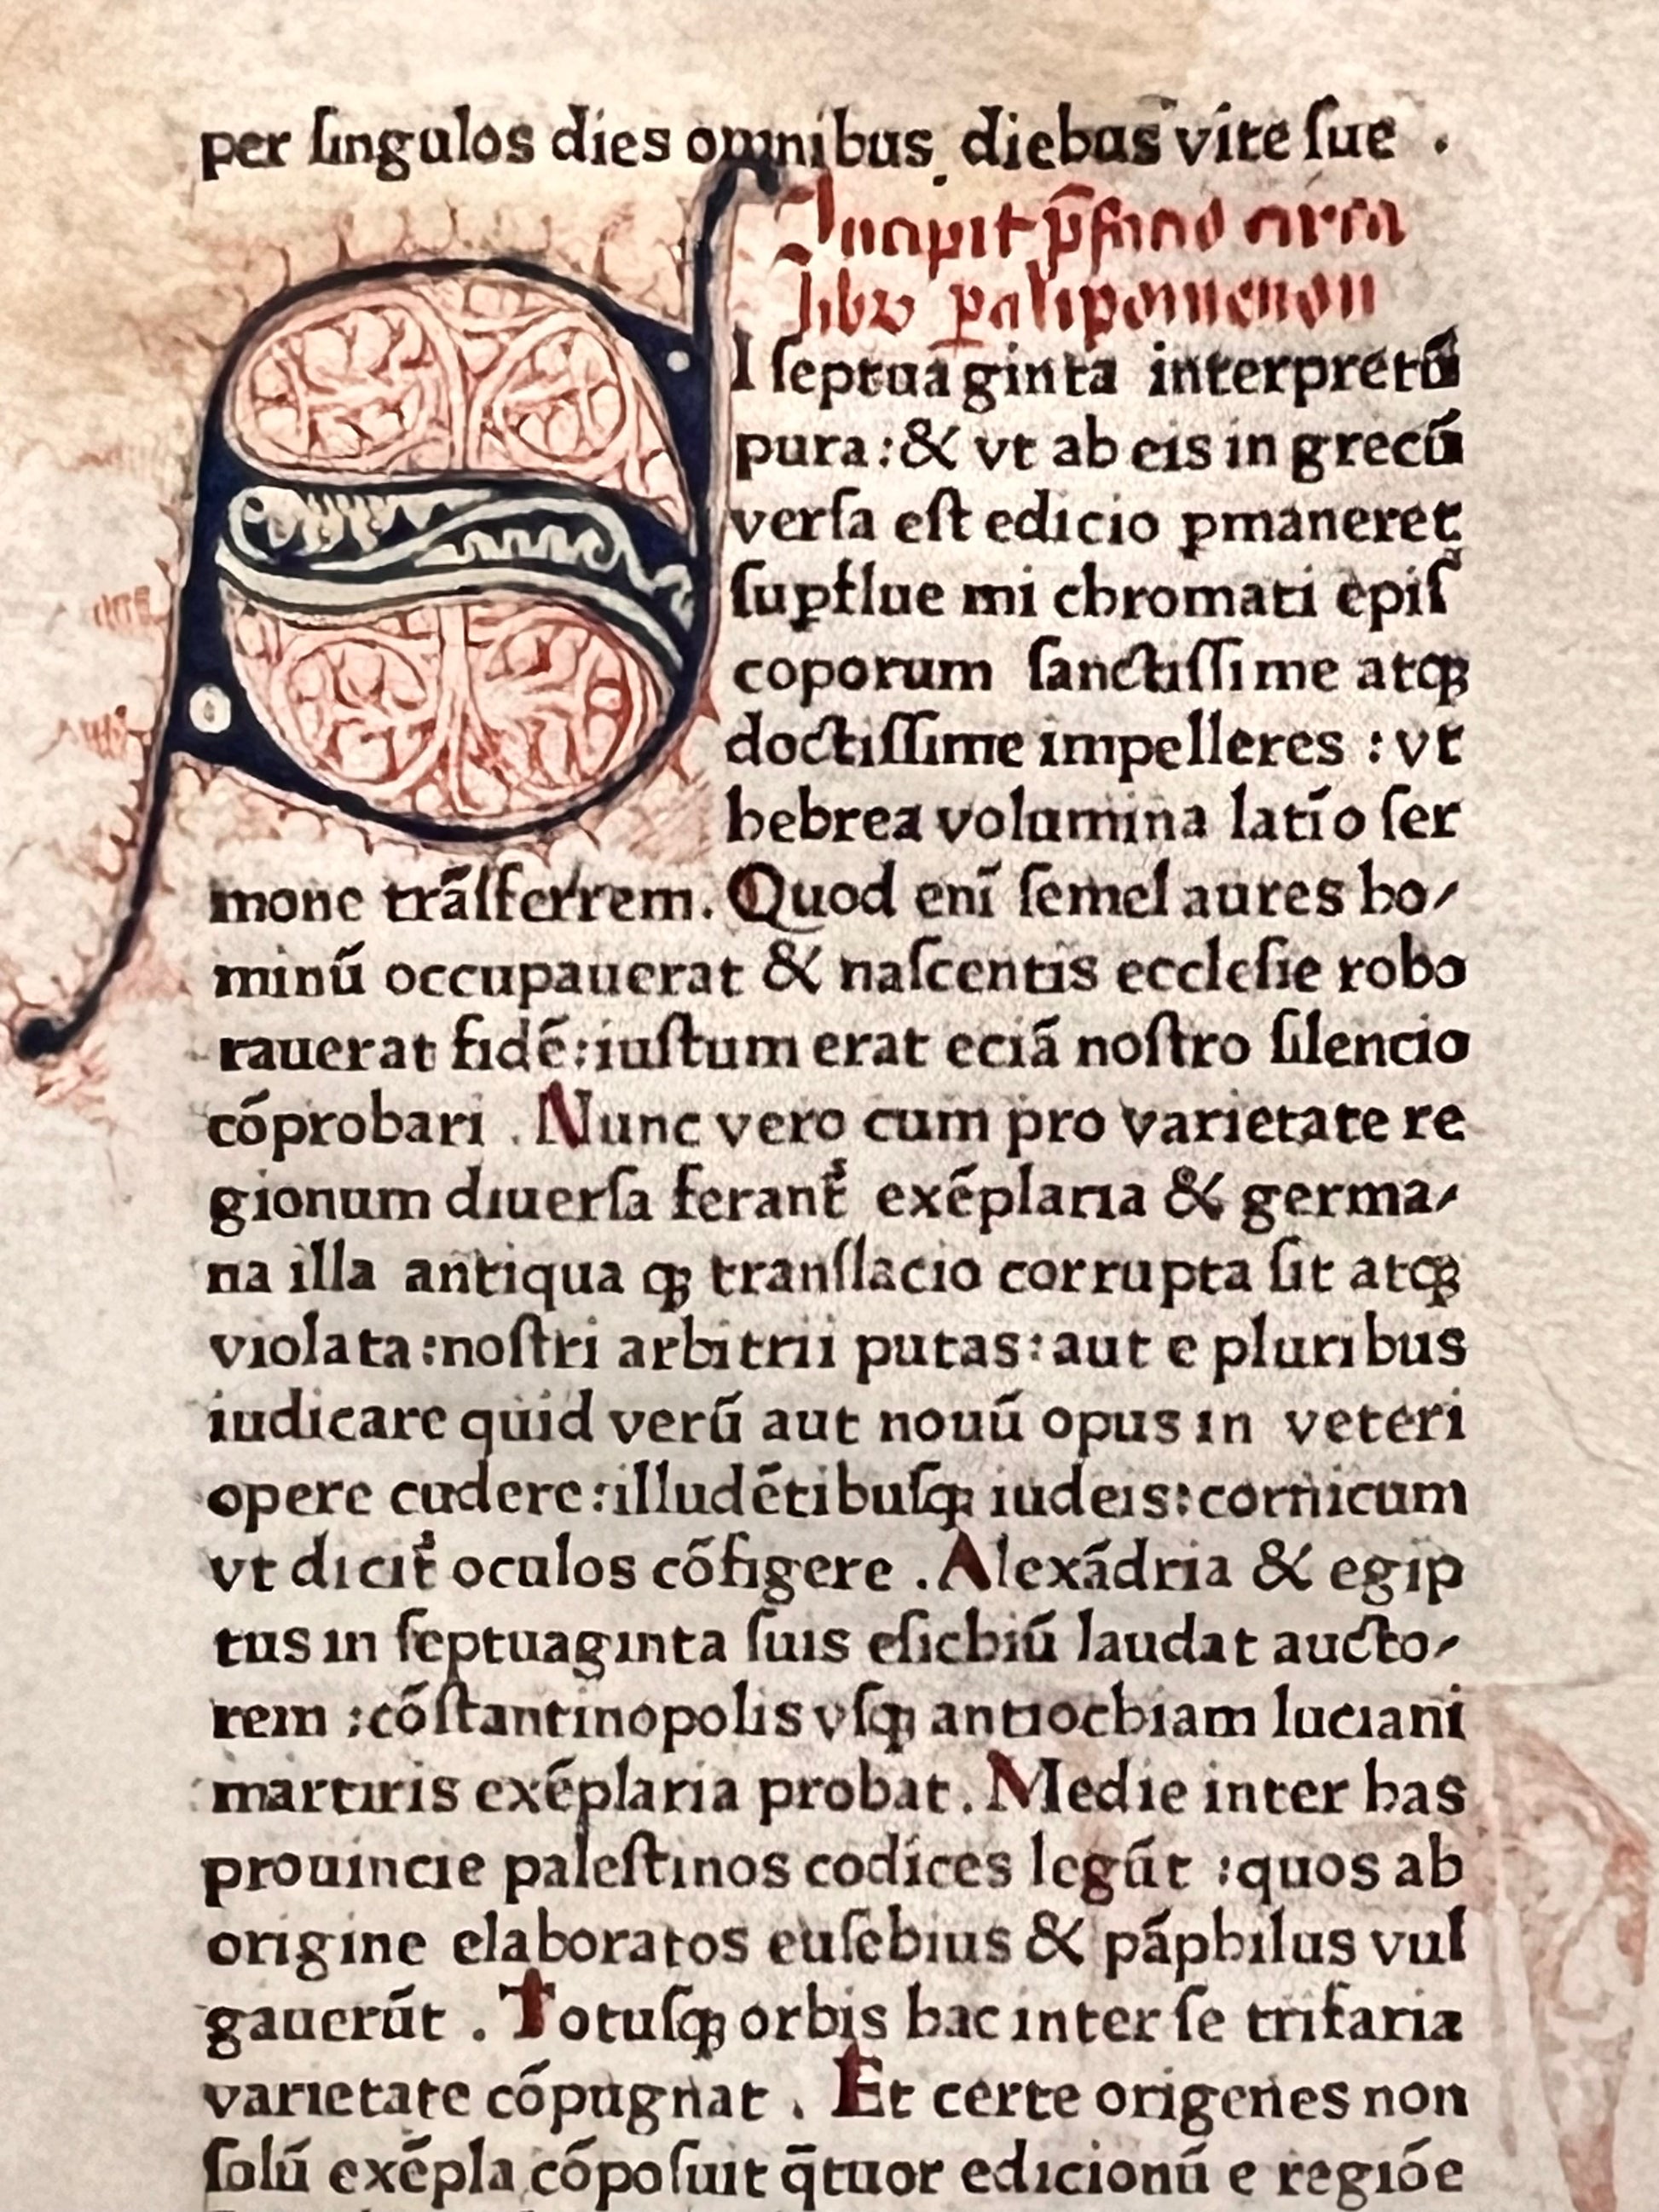 per ſingulos dies omnibus diebus vite ſue .
Incipit p̄facio circa
libꝝ paꝛalipomenon
SI ſeptuaginta interpretū
pura:& vt ab eis in grecū
verſa eſt edicio ꝑmaneret
ſuꝑflue mi chromati epiſ
coporum ſanctiſſime atqꝫ
doctiſſime impelleres : vt
hebrea volumina latīo ſer
mone trāſferrem. Quod enī ſemel aures ho/
minū occupauerat & naſcentis eccleſie robo
rauerat fidē:iuſtum erat eciā noſtro ſilencio
cōprobari . Nunc vero cum pro varietate re
gionum diuerſa ferant᷑ exēplaria & germa/
na illa antiqua qꝫ tranſlacio corrupta ſit atqꝫ
violata:noſtri arbitrii putas:aut e pluribus
iudicare quid verū aut nouū opus in veteri
opere cudere:illudētibuſqꝫ iudeis:cornicum
vt dicit᷑ oculos cōfigere . Alexādria & egip
tus in ſeptuaginta ſuis eſichiū laudat aucto/
rem :cōſtantinopolis vſqꝫ antiochiam luciani
martiris exēplaria probat. Medie inter has
prouincie paleſtinos codices legūt :quos ab
origine elaboratos euſebius & pāphilus vul
gauerūt . Totuſqꝫ orbis hac inter ſe trifaria
varietate cōpugnat . Et certe origenes non
ſolū exēpla cōpoſuit q̄tuor edicionū e regiōe